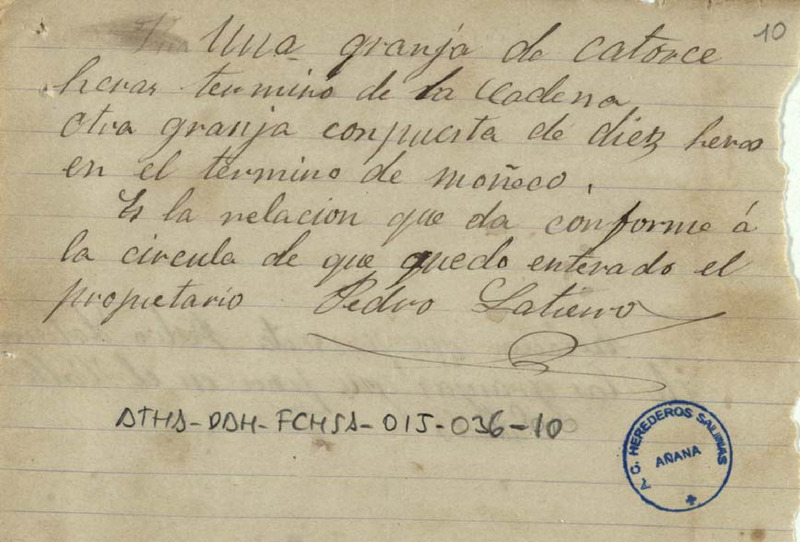 10
Una granja de catorce
heras termino de la Cadena
Otra granja conpuesta de diez heras
en el termino de moñeco.
Es la relacion que da conforme á
la circula de que quedo enterado el
propietario Pedro Latierro
ATHA-DAH-FCHSA-015-036-10
C. HEREDEROS SALINAS
AÑANA